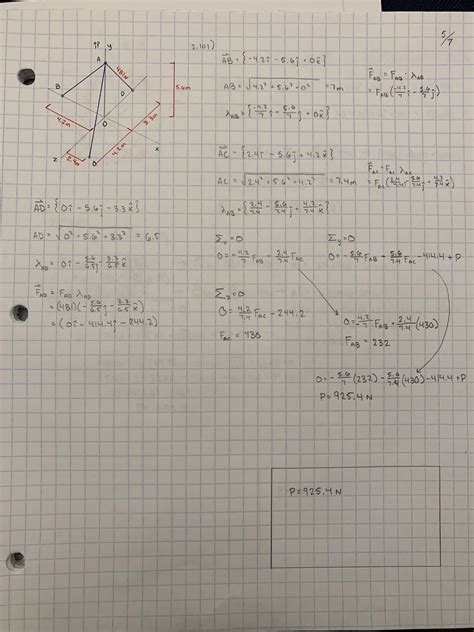 5/7
2.101)
↑P y
A
481N
B
D
O
C
x
z
5.6m
4.2m
3.3m
4.2m
2.4m
AB = {-4.2î - 5.6ĵ + 0k̂}
AB = √4.2² + 5.6² + 0² = 7m
λAB = {-4.2/7 î - 5.6/7 ĵ + 0k̂}
F̄AB = FAB · λAB
= FAB(-4.2/7 î - 5.6/7 ĵ)
AC = {2.4î - 5.6ĵ + 4.2k̂}
AC = √2.4² + 5.6² + 4.2² = 7.4m
λAB = {2.4/7.4 î - 5.6/7.4 ĵ + 4.2/7.4 k̂}
F̄AC = FAC λAC
= FAC(2.4/7.4 î - 5.6/7.4 ĵ + 4.2/7.4 k̂)
AD = {0î - 5.6ĵ - 3.3k̂}
AD = √0² - 5.6² + 3.3² = 6.5
λAD = 0î - 5.6/6.5 ĵ - 3.3/6.5 k̂
F̄AD = FAD λAD
= (481)(-5.6/6.5 ĵ - 3.3/6.5 k̂)
= (0î - 414.4ĵ - 244.2)
Σx = 0
0 = -4.2/7 FAB + 2.4/7.4 FAC
Σy = 0
0 = -5.6/7 FAB - 5.6/7.4 FAC - 414.4 + P
Σz = 0
0 = 4.2/7.4 FAC - 244.2
FAC = 430
0 = -4.2/7 FAB + 2.4/7.4 (430)
FAB = 232
0 = -5.6/7 (232) - 5.6/7.4 (430) - 414.4 + P
P = 925.4 N
P = 925.4 N